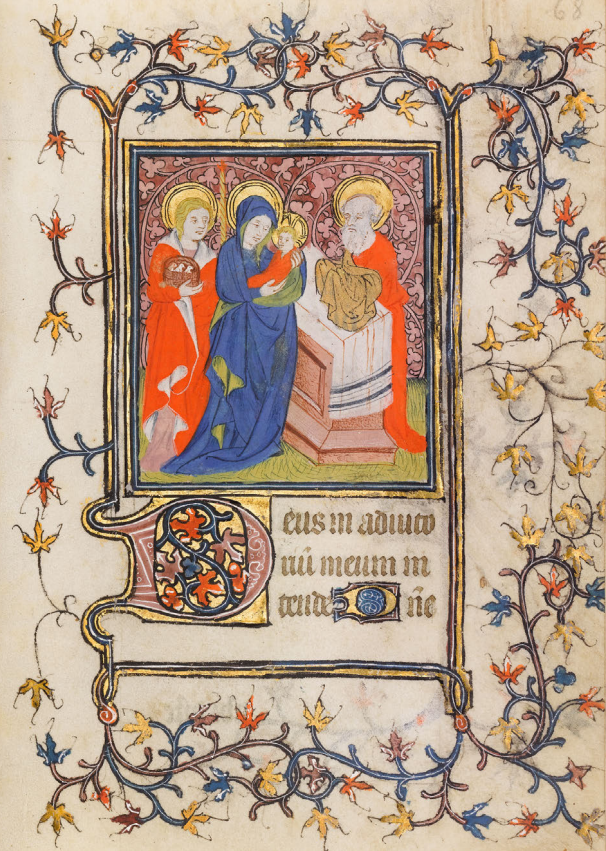 68
Deus in adiuto
riū meum in
tende Dn̄e